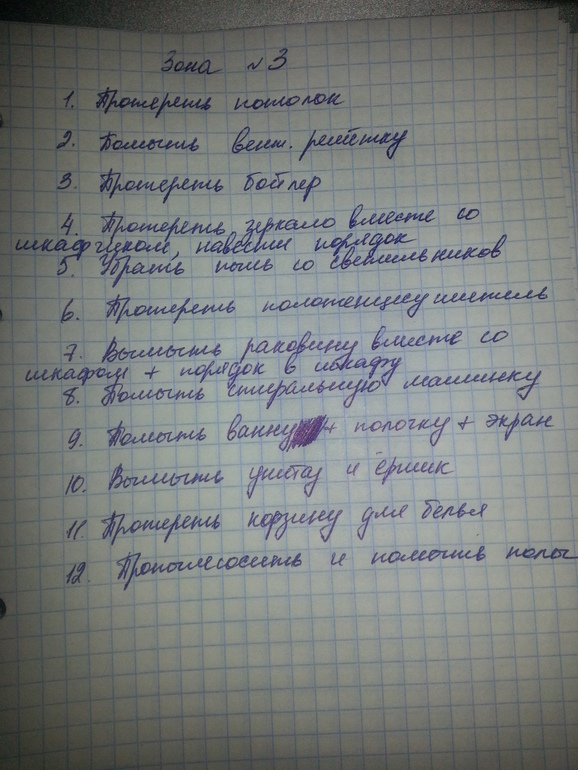 Зона №3
1. Протереть потолок
2. Помыть вент. решётку
3. Протереть бойлер
4. Протереть зеркало вместе со
шкафчиком, навести порядок
5. Убрать пыль со светильников
6. Протереть полотенцесушитель
7. Вымыть раковину вместе со
шкафом + порядок в шкафу
8. Помыть стиральную машинку
9. Помыть ванну + полочку + экран
10. Вымыть унитаз и ёршик
11. Протереть корзину для белья
12. Пропылесосить и помыть полы